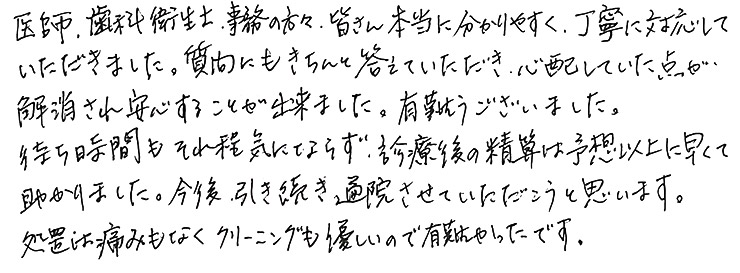 医師、歯科衛生士、事務の方々、皆さん本当に分かりやすく、丁寧に対応して
いただきました。質問にもきちんと答えていただき、心配していた点が
解消され安心することが出来ました。有難うございました。
待ち時間もそれ程気にならず、診療後の精算は予想以上に早くて
助かりました。今後、引き続き、通院させていただこうと思います。
処置は痛みもなくクリーニングも優しいので有難かったです。